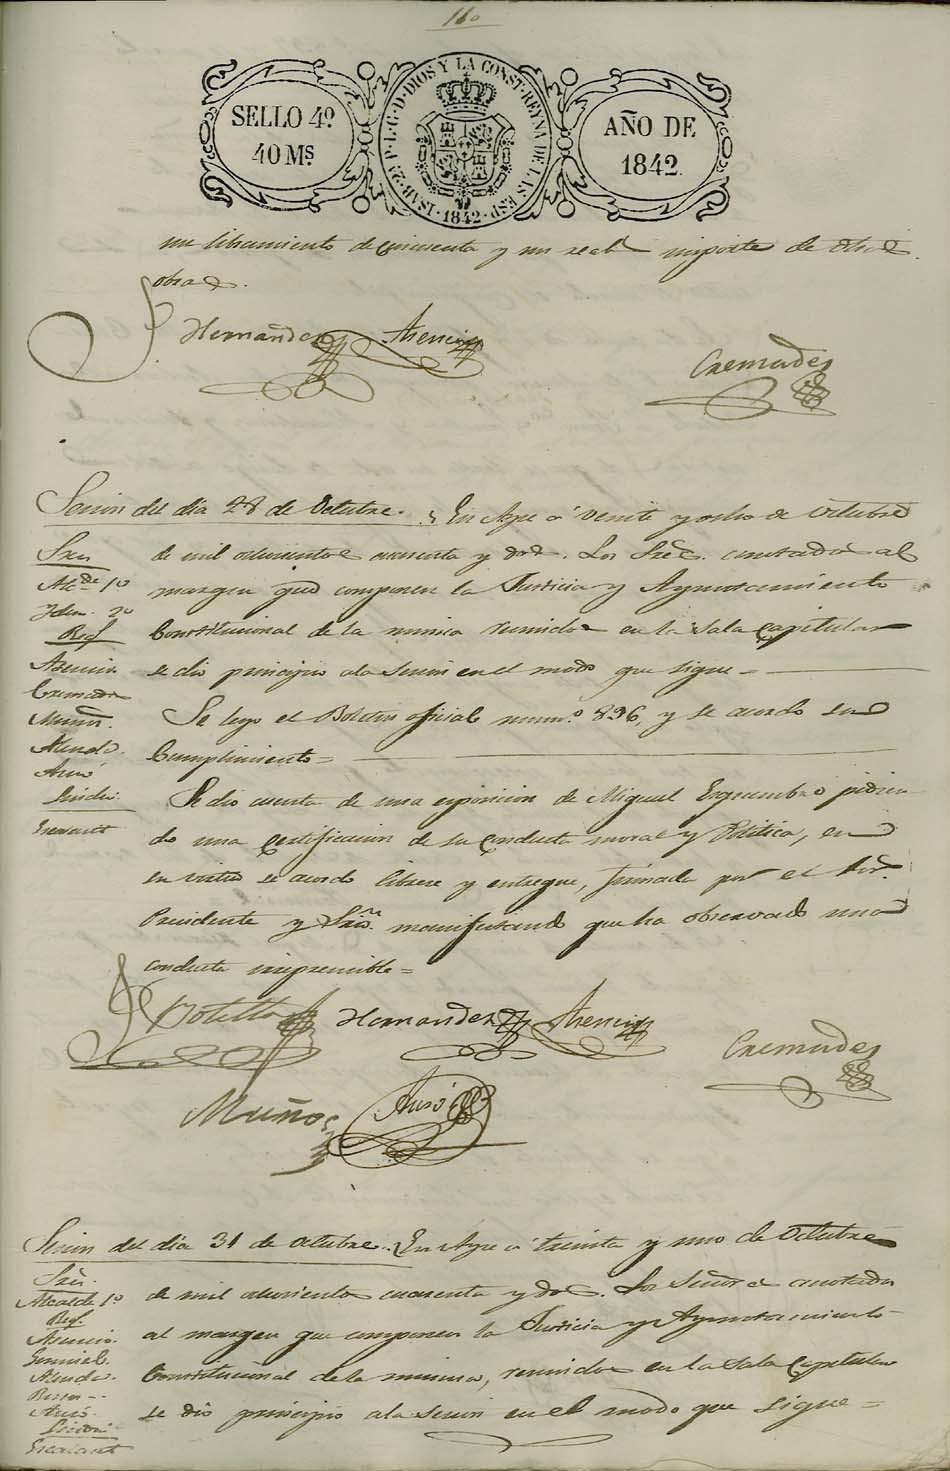 160
SELLO 4º
40 Ms
ISAB. 2ª P. L. G. D. DIOS Y LA CONST. REYNA DE LAS ESP. 1842
AÑO DE
1842.
un libramiento de cincuenta y un real importe de dha
obra
Hernandez Asencio
Cremades
Sesion del dia 28 de Octubre. En Aspe á veinte y ocho de Octubre
Sres de mil ochocientos cuarenta y dos. Los Sres. anotados al
Alcde 1º margen qe componen la Justicia y Ayuntamiento
Idem. 2º
Regs Constitucional de la misma reunidos en la Sala Capitular
Asencio. se dio principio a la Sesion en el modo que sigue
Cremades
Muñoz. Se leyo el Boletin oficial num.º 896, y se acordo su
Cumplimiento =
Auró
Sindº Se dio cuenta de una esposicion de Miguel pidien
do una Certificacion de su conducta moral y Politica, en
su virtud se acordo librese y entregue, firmada por el Sor.
Presidente y Srio. manifestando que ha observado una
conducta irreprensible =
Botella Hernandez Asencio
Cremades
Muños Auró
Sesion del dia 31 de Octubre. En Aspe á treinta y uno de Octubre
Sres. de mil ochocientos cuarenta y dos. Los Señores anotados
Alcalde 1º
Regs. al margen que componen la Justicia y Ayuntamiento
Asencio.
Constitucional de la misma, reunidos en la Sala Capitular
Auró. se dio principio a la Sesion en el modo que sigue =
Sindº
Escalant